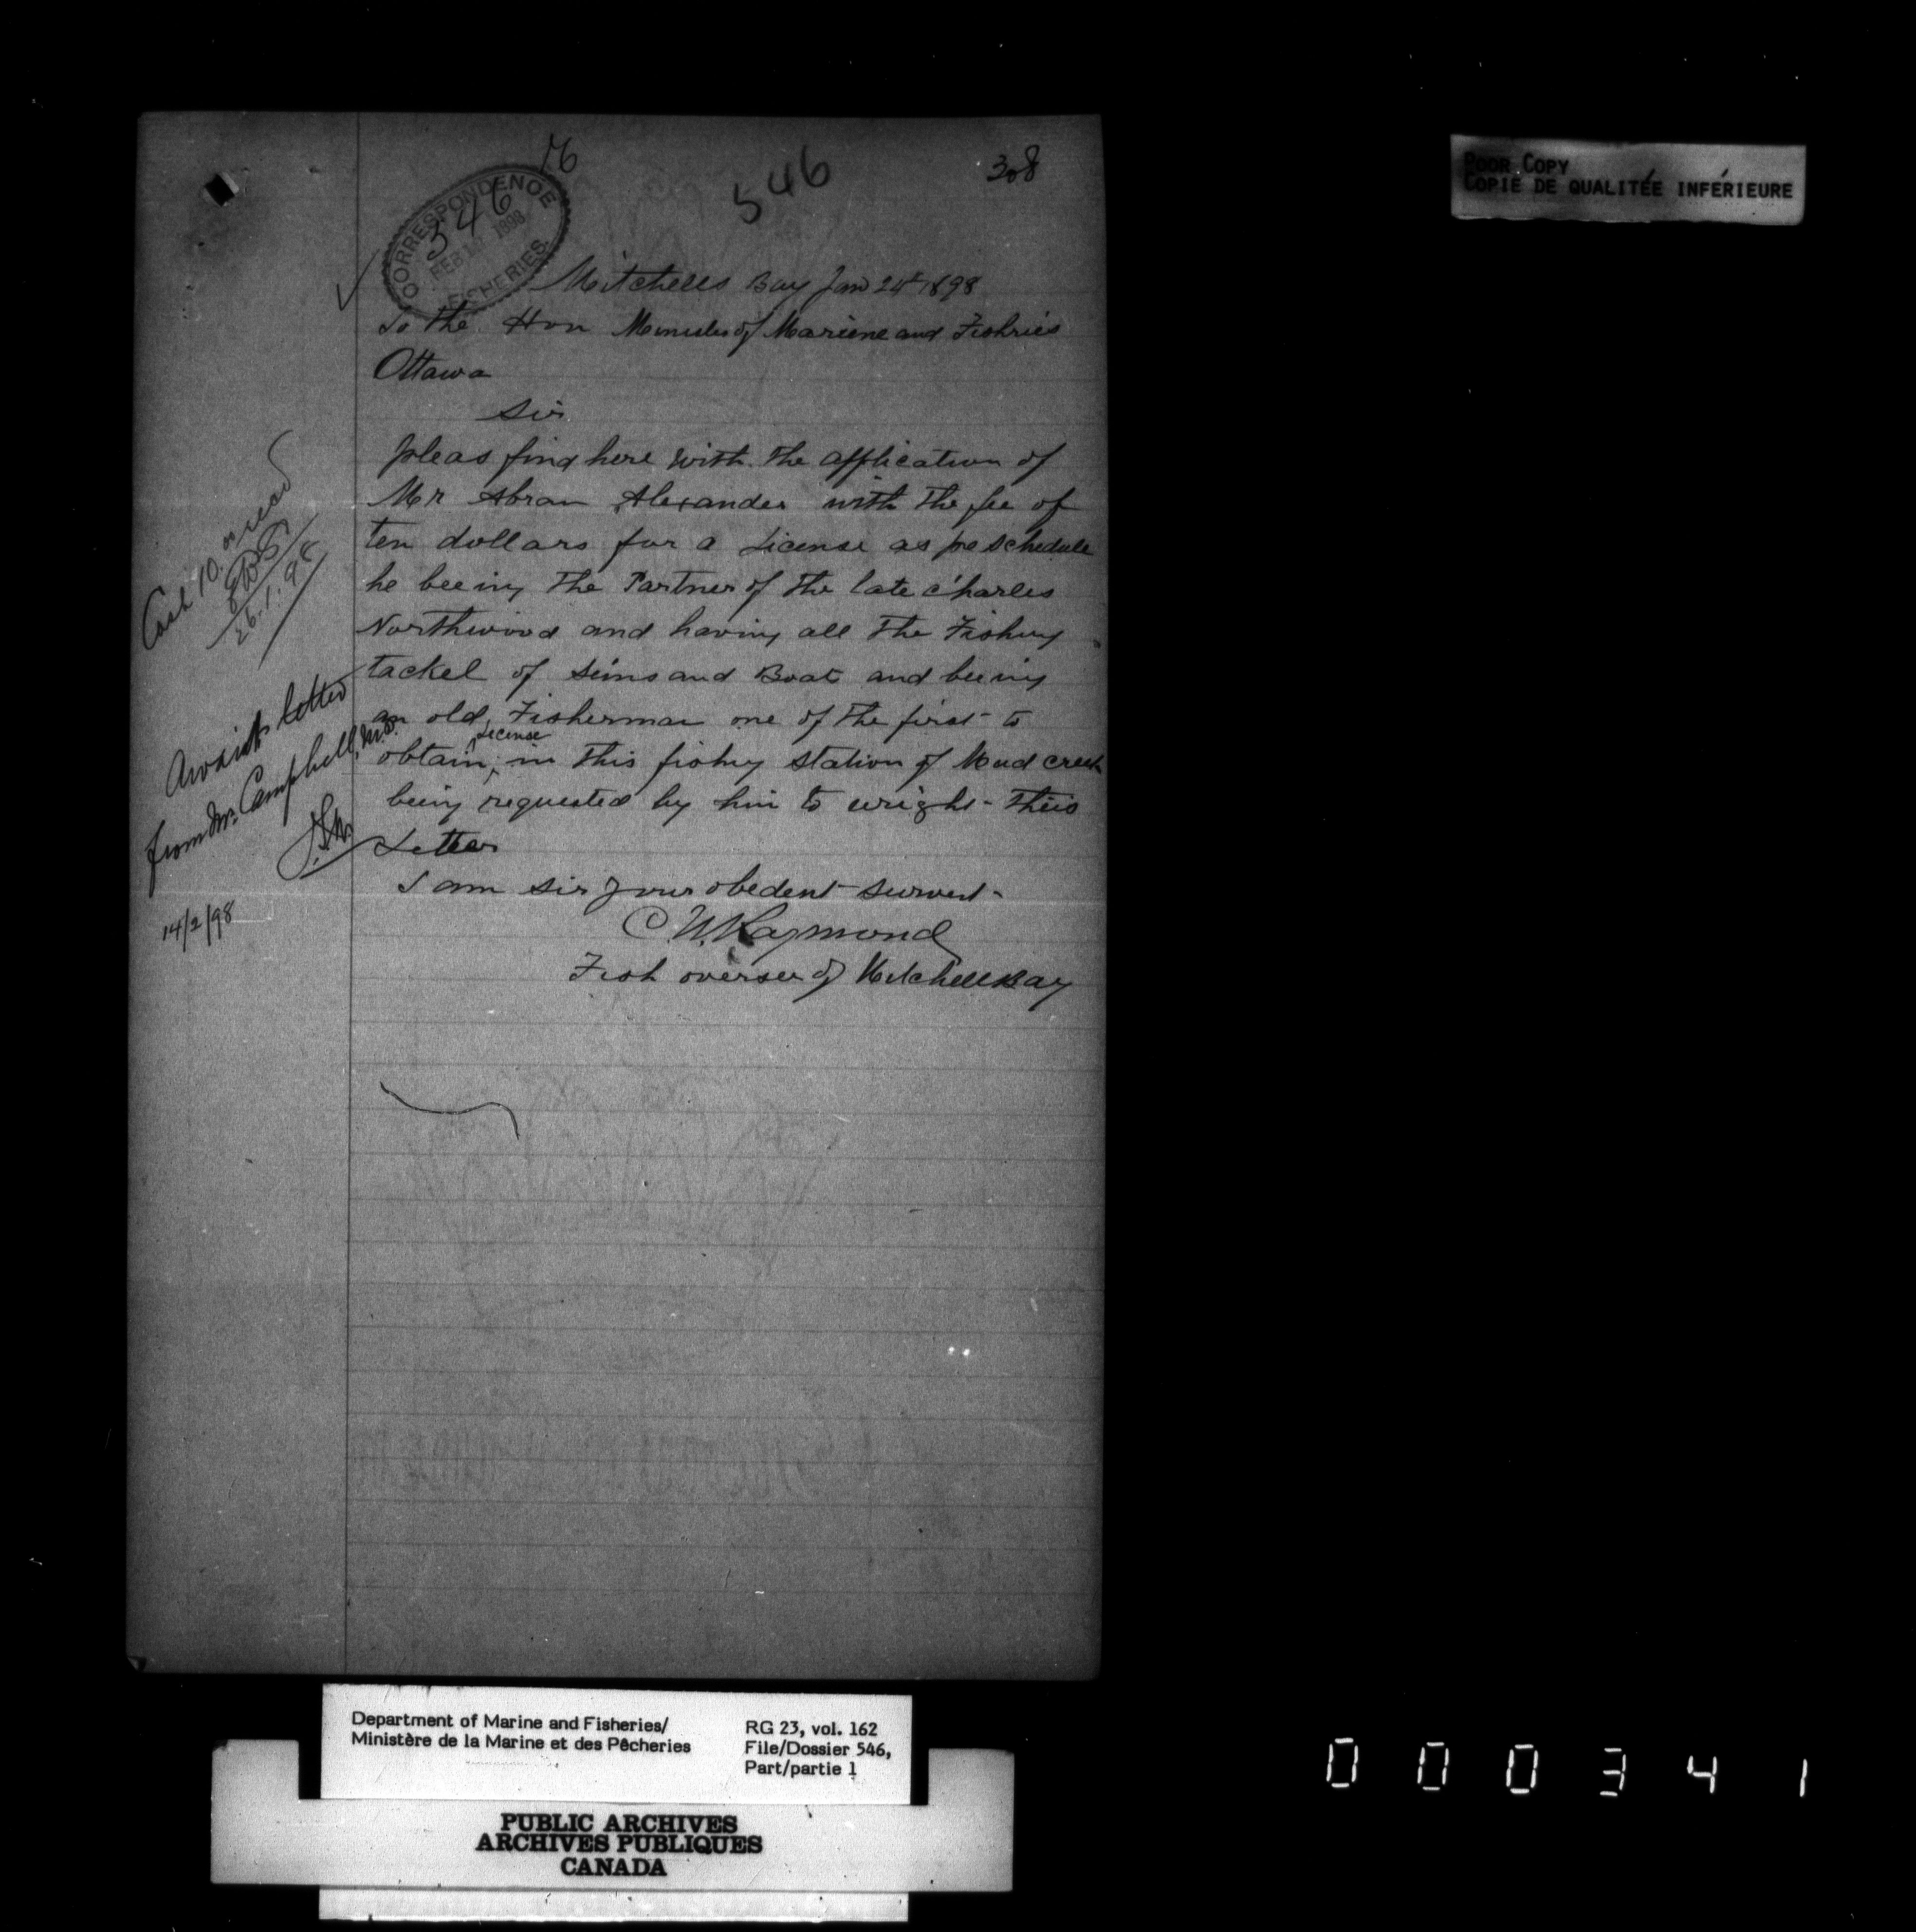 76
546
308
CORRESPONDENCE
546
FEB 12 1898
FISHERIES.
Mitchells Bay Jan 24th 1898
To the Hon Minister of Mariene and Fishries
Ottawa
Sir
pleas find here with the application of
Mr Abram Alexander with the fee of
ten dollars for a License as pe schedule
he beeing the Partner of the late Charles
Northwood and having all the Fishing
tackel of Seins and Boat and beeing
an old Fisherman one of the first to
obtain License in this fishing station of Mud creek
being requested by him to wright this
Letter
I am sir your obedent survent
C. W. Raymond
Fish overseer of Mitchell Bay
Cash 10.00 read
26.1.98
Await letter
from Mr. Campbell, M.P.
14/2/98
POOR COPY
COPIE DE QUALITÉE INFÉRIEURE
Department of Marine and Fisheries/
Ministère de la Marine et des Pêcheries
RG 23, vol. 162
File/Dossier 546,
Part/partie 1
PUBLIC ARCHIVES
ARCHIVES PUBLIQUES
CANADA
000341